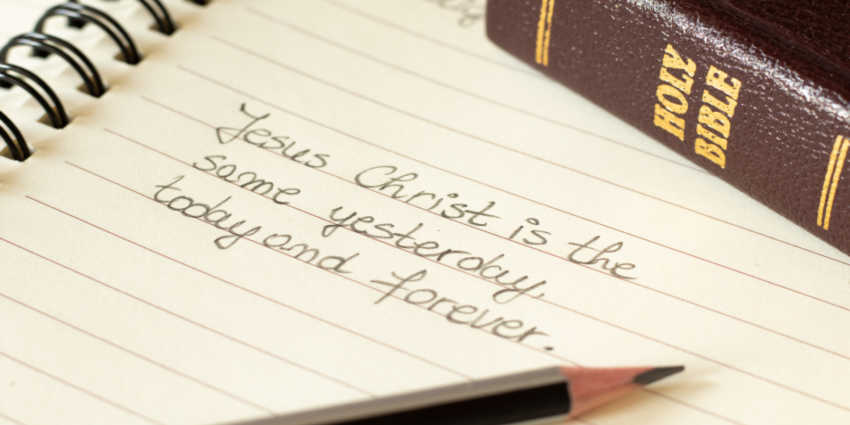 Jesus Christ is the
same yesterday,
today and forever.
HOLY
BIBLE